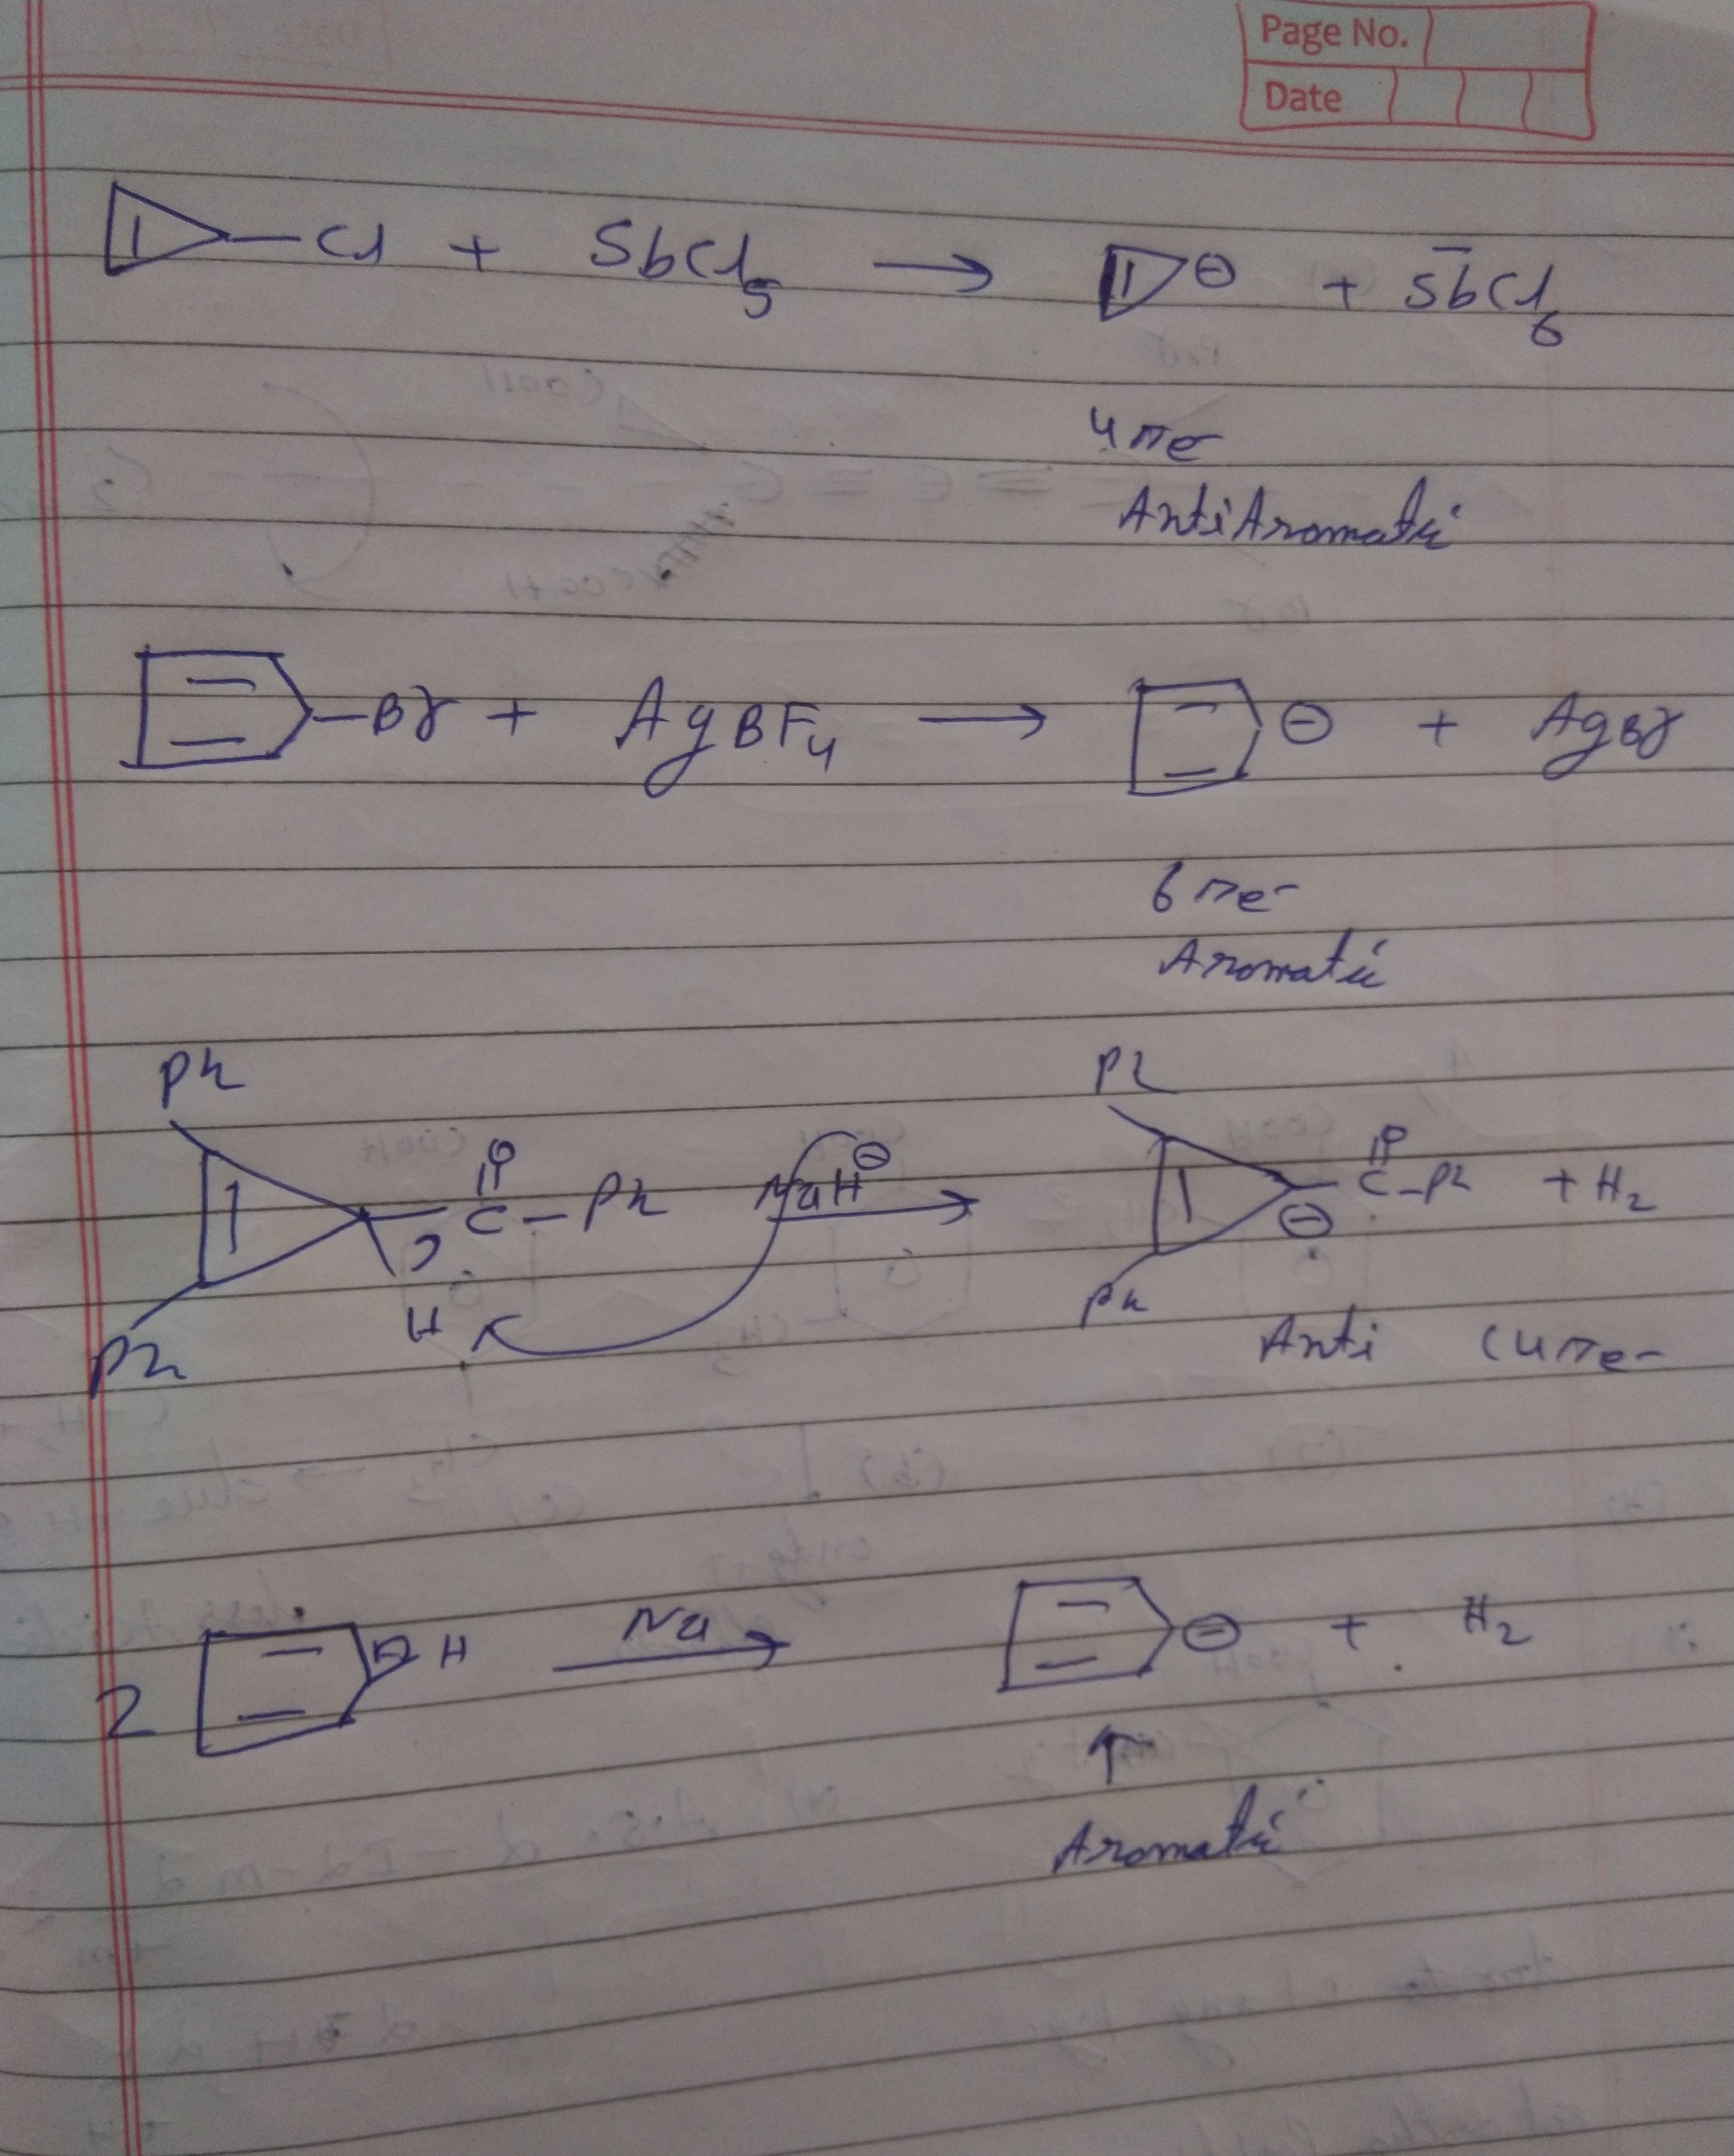 Page No.
Date
Cl + SbCl5 → ⊖ + S̄bCl6
4πe
AntiAromatic
Br + AgBF4 → ⊖ + AgBr
6πe-
Aromatic
Ph
Ph
O
O
C-Ph NaH⊖ → C-Ph + H2
⊖
H
Ph
Ph
Anti (4πe-
2 H Na → ⊖ + H2
↑
Aromatic